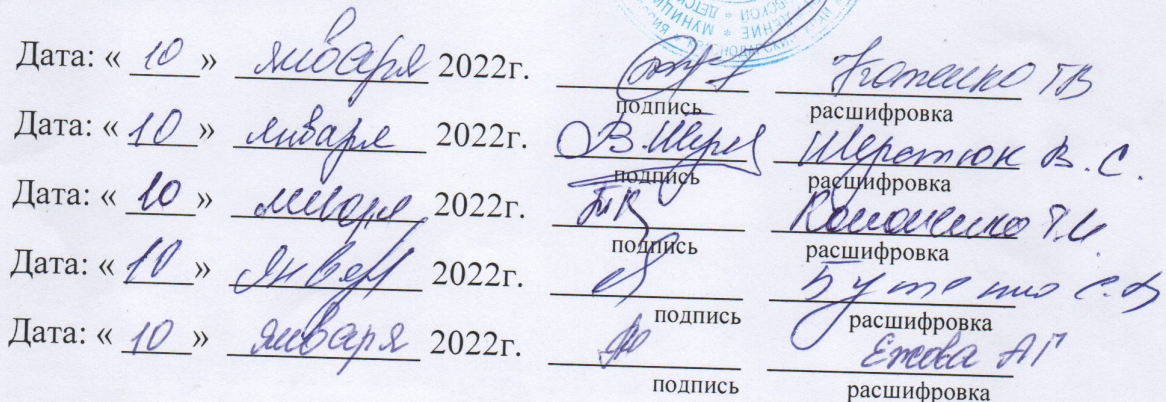 Дата: « 10 » января 2022г.
подпись расшифровка
Дата: « 10 » января 2022г. В.Шерет Шеретюк В.С.
подпись расшифровка
Дата: « 10 » января 2022г. Кононенко Т.И.
подпись расшифровка
Дата: « 10 » января 2022г. Бутенко С.В
подпись расшифровка
Дата: « 10 » января 2022г. Ежова АГ
подпись расшифровка